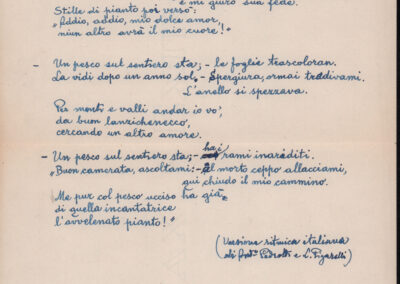 e mi giurò sua fede.
Stille di pianto poi versò:
"Addio, addio, mio dolce amor,
niun altro avrà il mio cuore!"
- Un pesco sul sentiero sta; - le foglie trascoloran.
La vidi dopo un anno sol, - Spergiura, ormai tradivami.
L'anello si spezzava.
Per monti e valli andar io vo',
da buon lanzichenecco,
cercando un altro amore.
- Un pesco sul sentiero sta; - hai rami inariditi.
"Buon camerata, ascoltami: - al morto ceppo allacciami,
qui chiudo il mio cammino.
Me pur col pesco ucciso ha già
di quella incantatrice
l'avvelenato pianto!"
(Versione ritmica italiana
di Ant. Pedrotti e L. Pigarelli)